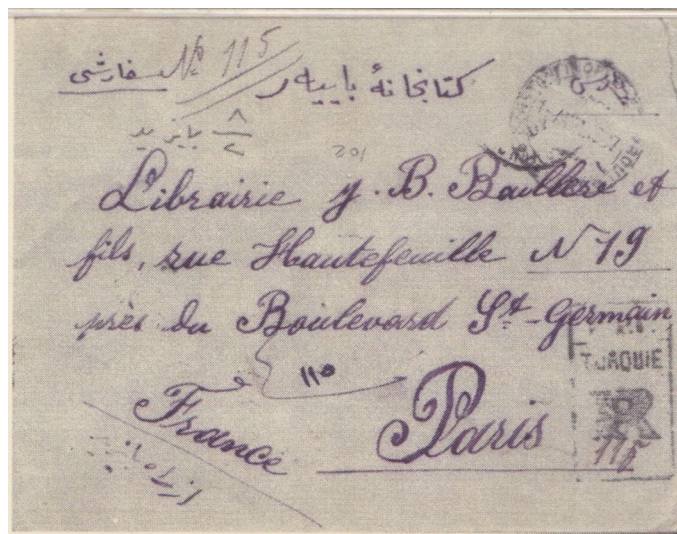 سفارشی
№ 115
کتابخانهٔ باییه‌ر
201
Librairie J. B. Baillère et
fils, rue Hautefeuille N 19
près du Boulevard St-Germain
110
France
Paris
R
115